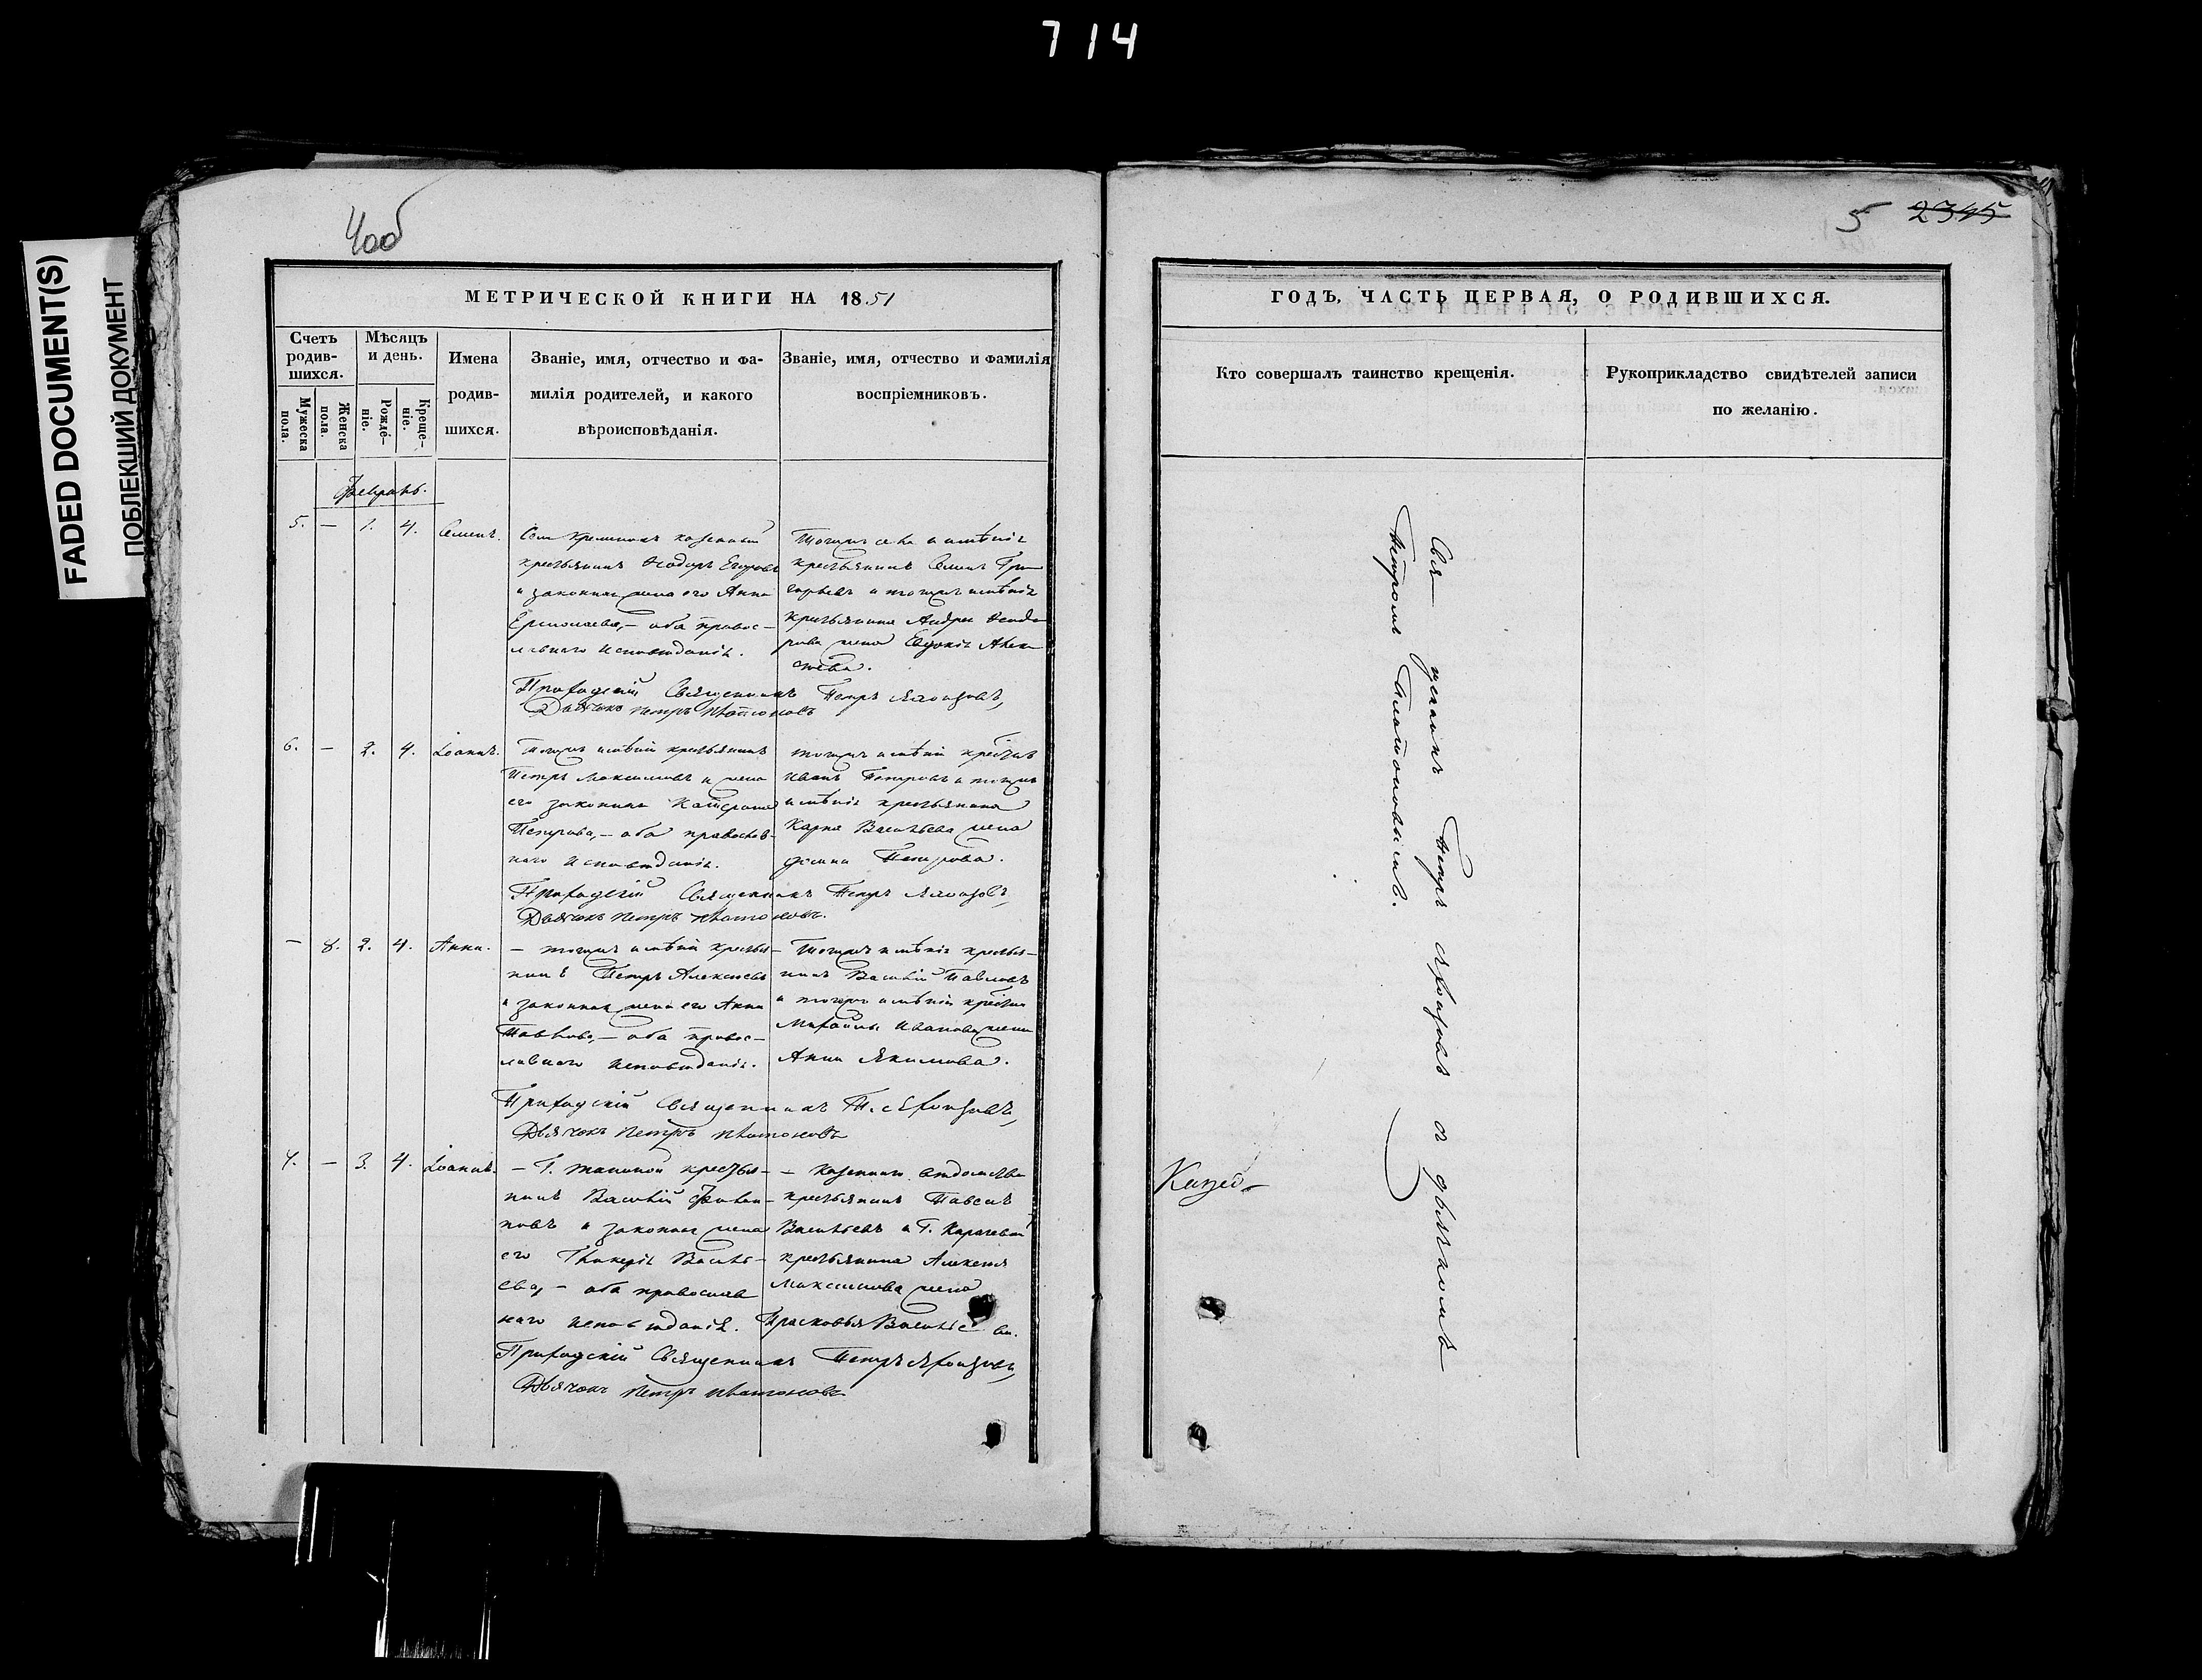 714
FADED DOCUMENT(S)
ПОБЛЕКШИЙ ДОКУМЕНТ
4об
МЕТРИЧЕСКОЙ КНИГИ НА 1851
Счетъ родив-шихся.
Мѣсяцъ и день.
Имена родив-шихся.
Званіе, имя, отчество и фа-
милія родителей, и какого
вѣроисповѣданія.
Званіе, имя, отчество и фамилія
воспріемниковъ.
Мужеска пола.
Женска пола.
Рождé-ніе.
Креще-ніе.
Февраль.
5. — 1. 4. Семенъ.
крестьянинъ Ѳеодоръ Егоровъ
и законная жена его Анна
Ермолаева, — оба правос-
лавнаго исповѣданія.
крестьянинъ Семенъ Гри-
горьевъ и тогожъ имѣнія
крестьянина Андрея Ѳеодо
рова жена Евдокія Алек
сѣева.
Приходскій Священникъ Петръ
Дьячокъ Петръ Платоновъ
6. — 2. 4. Іоаннъ.
Тогожъ имѣнія крестьянинъ
Петръ Максимовъ и жена
его законная Катерина
Петрова, — оба православ-
наго исповѣданія.
тогожъ имѣнія
Иванъ Петровъ и тогожъ
имѣнія крестьянина
Карпа Васильева жена
Петрова.
Приходскій Священникъ Петръ
Дьячокъ Петръ Платоновъ.
— 8. 2. 4. Анна.
— тогожъ имѣнія крестья-
нинъ Петръ Алексѣевъ
и законная жена его Анна
Павлова, — оба правос-
лавнаго исповѣданія.
— Тогожъ имѣнія крестья-
нинъ Василій Павловъ
и тогожъ имѣнія
Михайлы Иванова жена
Анна Якимова.
Приходскій Священникъ П.
Дьячокъ Петръ Платоновъ
7. — 3. 4. Іоаннъ.
— Г. крестья-
нинъ Василій
новъ и законная жена
его Гликерія Василь-
ева, — оба православ
наго исповѣданія.
— Казеннаго вѣдомства
крестьянинъ Павелъ
Васильевъ и Г.
крестьянина Алексѣя
Максимова жена
Прасковья Василье ва.
Приходскій Священникъ Петръ
Дьячокъ Петръ Платоновъ
5 2345
ГОДЪ, ЧАСТЬ ПЕРВАЯ, О РОДИВШИХСЯ.
Кто совершалъ таинство крещенія.
Рукоприкладство свидѣтелей записи
по желанію.
Свя щенникъ Петръ съ дьячкомъ
Петромъ Платоновымъ.